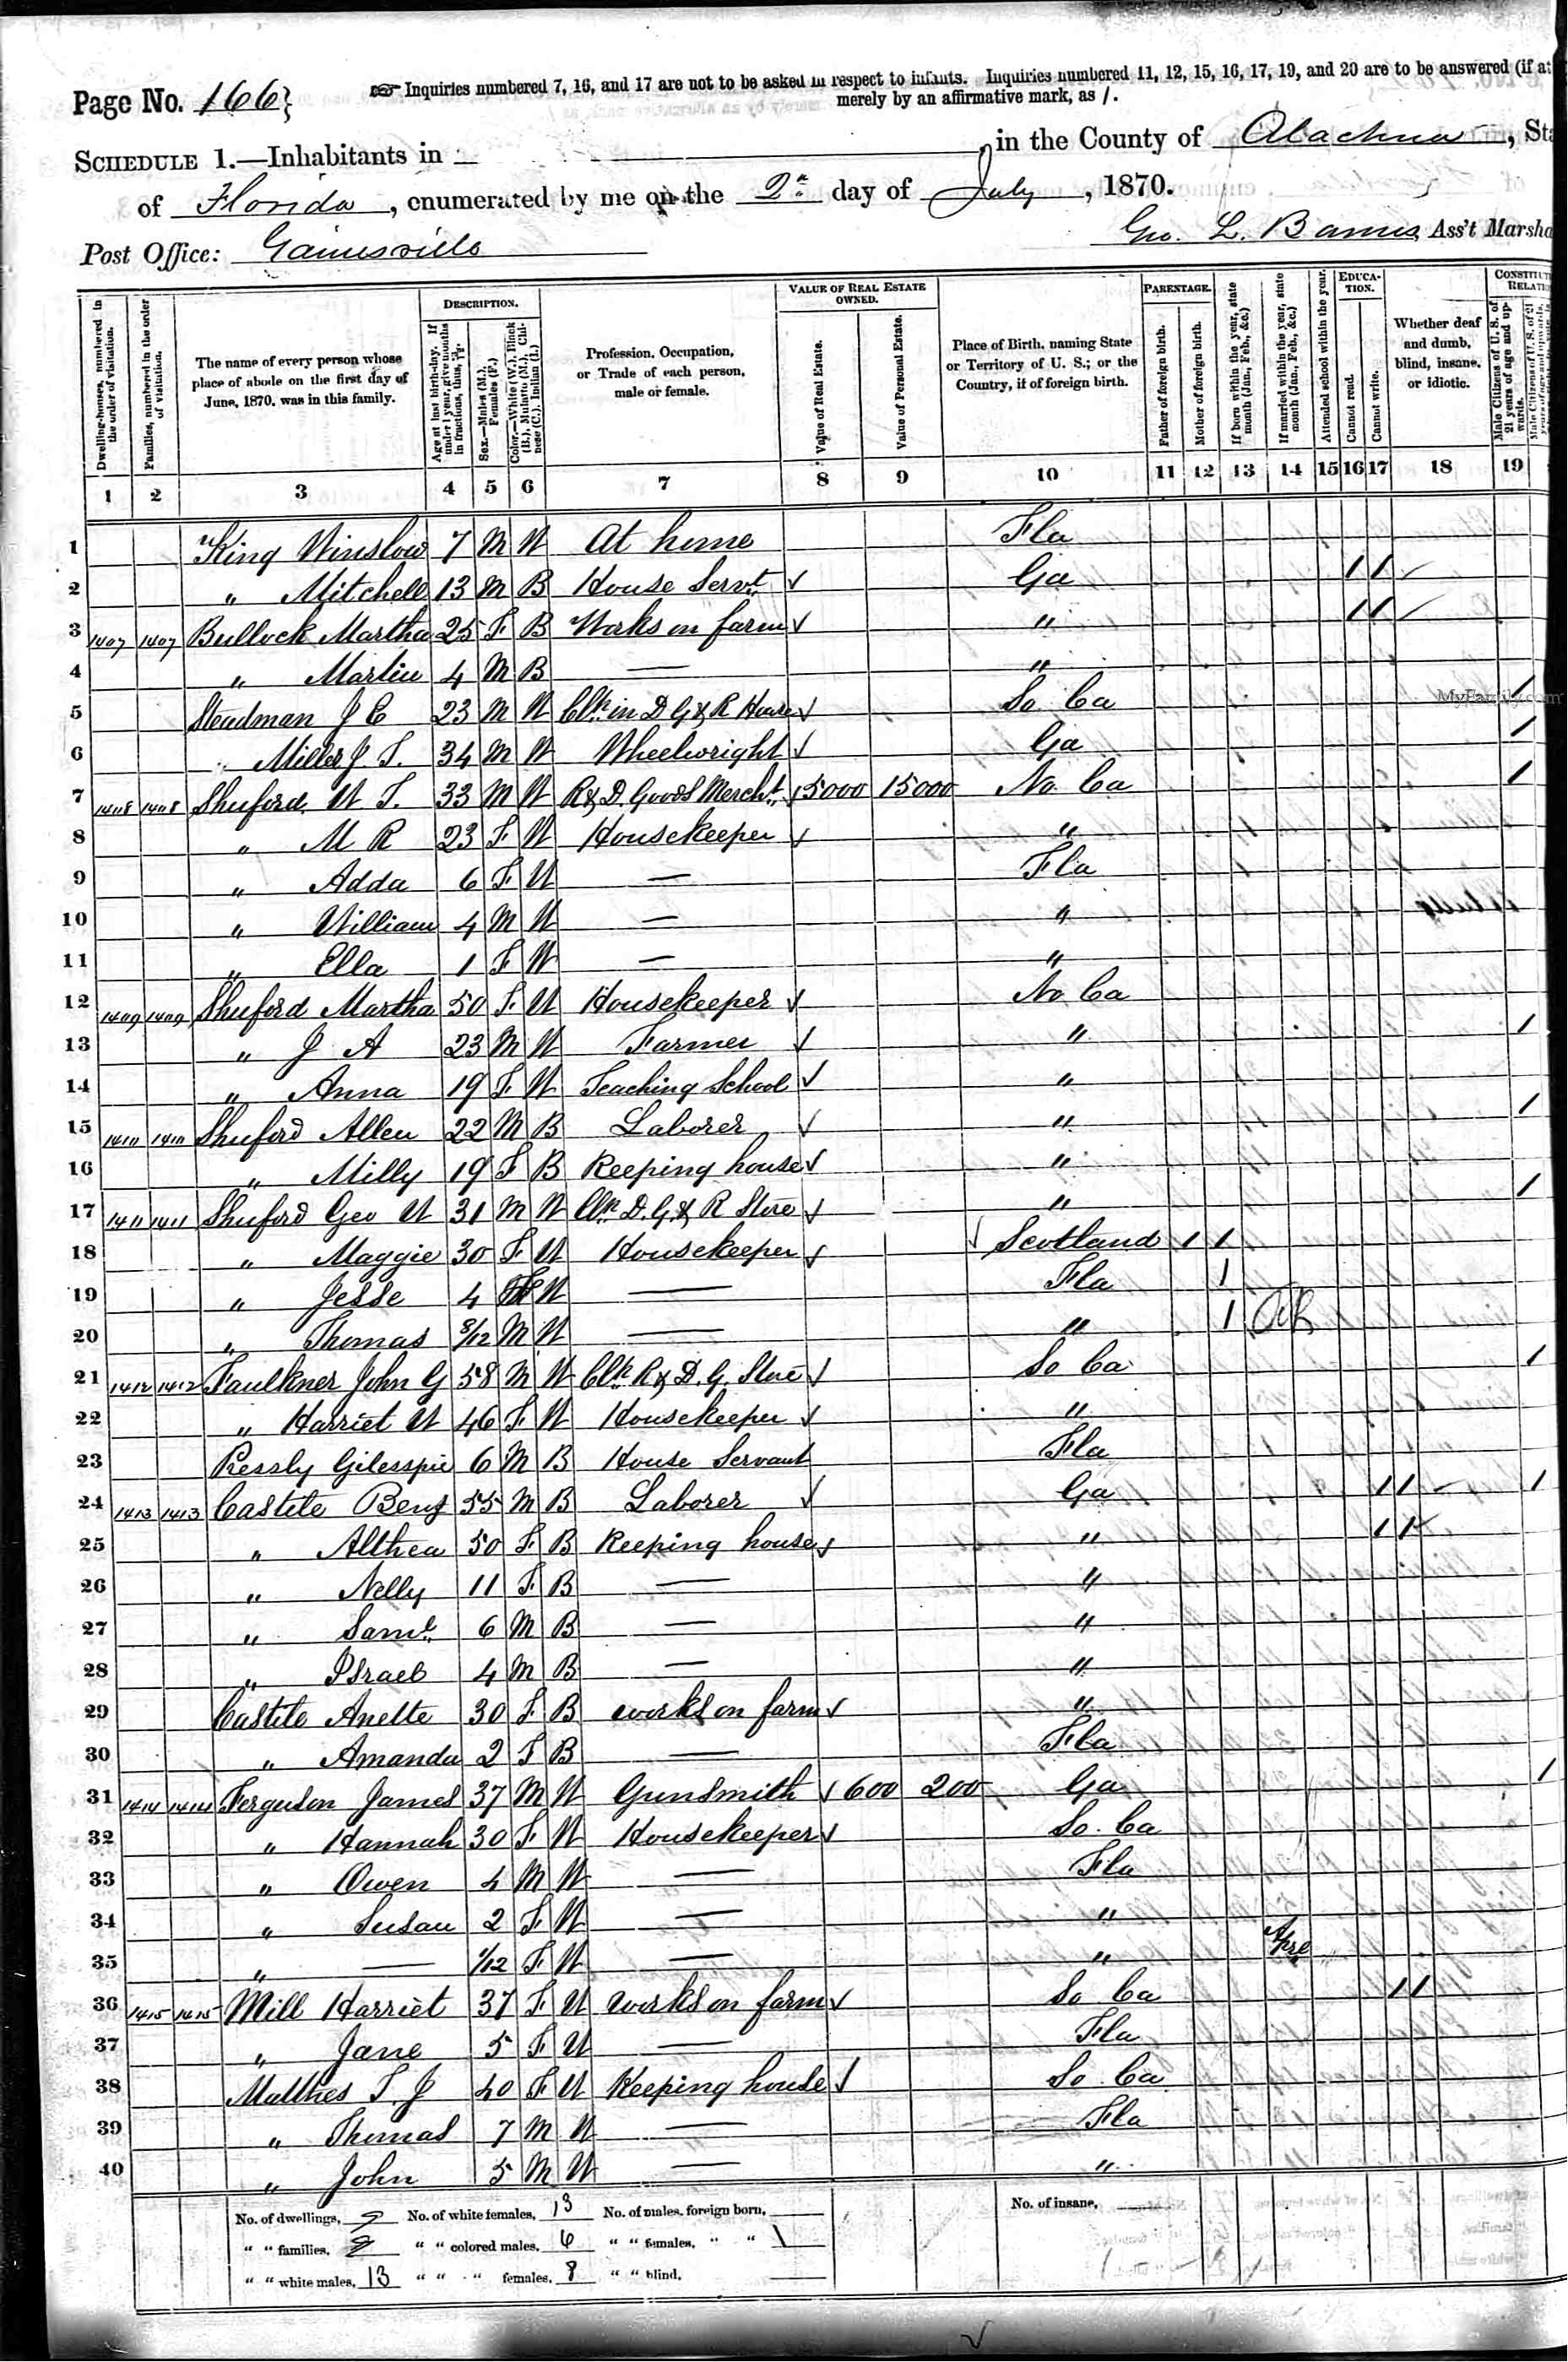 Page No. 166}
Inquiries numbered 7, 16, and 17 are not to be asked in respect to infants. Inquiries numbered 11, 12, 15, 16, 17, 19, and 20 are to be answered (if at
merely by an affirmative mark, as /.
SCHEDULE 1.—Inhabitants in — , in the County of Alachua, Sta
of Florida, enumerated by me on the 2d day of July, 1870.
Post Office: Gainesville
Geo. L. Barnes, Ass't Marsha
Dwelling-houses, numbered in the order of visitation.
Families, numbered in the order of visitation.
The name of every person whose place of abode on the first day of June, 1870, was in this family.
DESCRIPTION.
Age at last birth-day. If under 1 year, give months in fractions, thus,
Sex.—Males (M.), Females (F.)
Color.—White (W.), Black (B.), Mulatto (M.), Chinese (C.), Indian (I.)
Profession, Occupation, or Trade of each person, male or female.
VALUE OF REAL ESTATE OWNED.
Value of Real Estate.
Value of Personal Estate.
Place of Birth, naming State or Territory of U. S.; or the Country, if of foreign birth.
PARENTAGE.
Father of foreign birth.
Mother of foreign birth.
If born within the year, state month (Jan., Feb., &c.)
If married within the year, state month (Jan., Feb., &c.)
Attended school within the year.
EDUCATION.
Cannot read.
Cannot write.
Whether deaf and dumb, blind, insane, or idiotic.
CONSTITUT RELATIO
Male Citizens of U. S. of 21 years of age and upwards.
1 2 3 4 5 6 7 8 9 10 11 12 13 14 15 16 17 18 19
1 King Winslow 7 M W At home Fla
2 " Mitchell 13 M B House Servt Ga 1 1
3 1407 1407 Bullock Martha 25 F B Works on farm " 1 1
4 " Martin 4 M B — "
5 Steadman J C 23 M W Clk in D G & R House So Ca 1
MyFamily.com
6 Miller J T. 34 M W Wheelwright Ga 1
7 1408 1408 Shuford W T. 33 M W R & D. Goods Mercht 5000 15000 No Ca 1
8 " M R 23 F W Housekeeper "
9 " Adda 6 F W — Fla
10 " William 4 M W — "
11 " Ella 1 F W — "
12 1409 1409 Shuford Martha 50 F W Housekeeper No Ca
13 " J A 23 M W Farmer " 1
14 " Anna 19 F W Teaching School "
15 1410 1410 Shuford Allen 22 M B Laborer " 1
16 " Milly 19 F B Keeping house "
17 1411 1411 Shuford Geo W 31 M W Clk D. G. & R Store " 1
18 " Maggie 30 F W Housekeeper Scotland 1 1
19 " Jesse 4 W — Fla 1
20 " Thomas 8/12 M W — " 1
21 1412 1412 Faulkner John G 58 M W Clk R & D. G. Store So Ca 1
22 " Harriet W 46 F W Housekeeper "
23 Pressly Gilesspie 6 M B House Servant Fla
24 1413 1413 Castile Benj 55 M B Laborer Ga 1 1 1
25 " Althea 50 F B Keeping house " 1 1
26 " Nelly 11 F B — "
27 " Saml. 6 M B — "
28 " Israel 4 M B — "
29 Castile Anette 30 F B works on farm "
30 " Amanda 2 F B — Fla
31 1414 1414 Ferguson James 37 M W Gunsmith 600 200 Ga 1
32 " Hannah 30 F W Housekeeper So. Ca
33 " Owen 4 M W — Fla
34 " Susan 2 F W — "
35 " — 1/12 F W — " Apre
36 1415 1415 Mill Harriet 37 F W works on farm So Ca 1 1
37 " Jane 5 F W — Fla
38 Matthes T. J 40 F W Keeping house So Ca
39 " Thomas 7 M W — Fla
40 " John 5 M W — "
No. of dwellings, 9 No. of white females, 13 No. of males, foreign born, — No. of insane, —
" " families, 9 " " colored males, 6 " " females, " " 1
" " white males, 13 " " " females, 8 " " blind, —